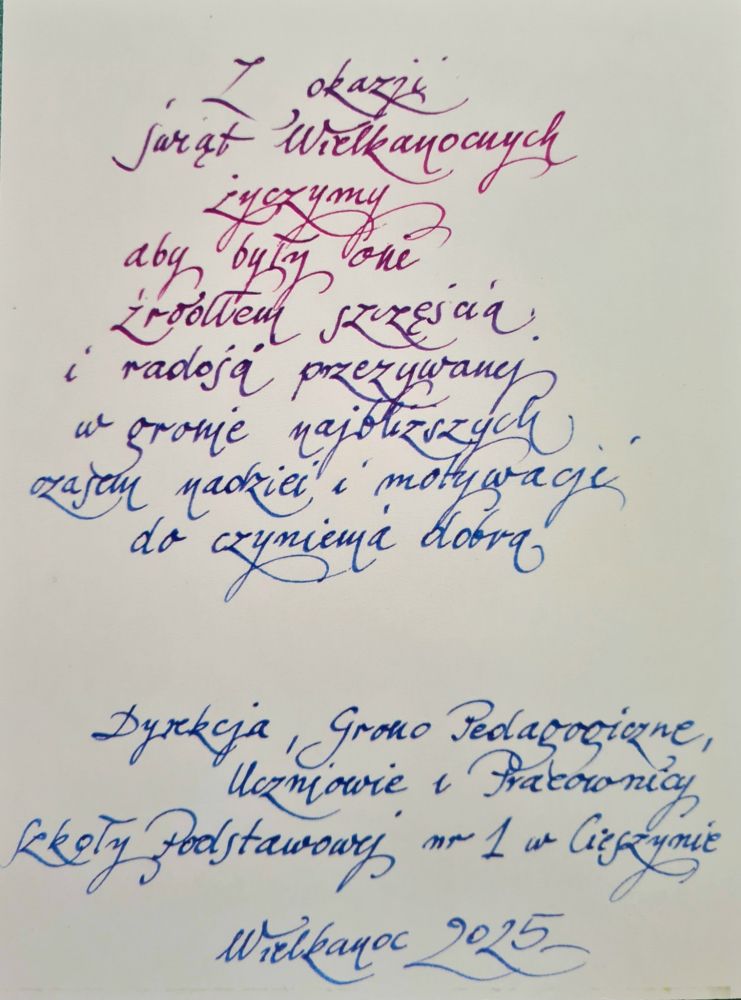 Z okazji
świąt Wielkanocnych
życzymy
aby były one
źródłem szczęścia
i radości przeżywanej
w gronie najbliższych
czasem nadziei i motywacji
do czynienia dobra
Dyrekcja, Grono Pedagogiczne,
Uczniowie i Pracownicy
Szkoły Podstawowej nr 1 w Cieszynie
Wielkanoc 2025